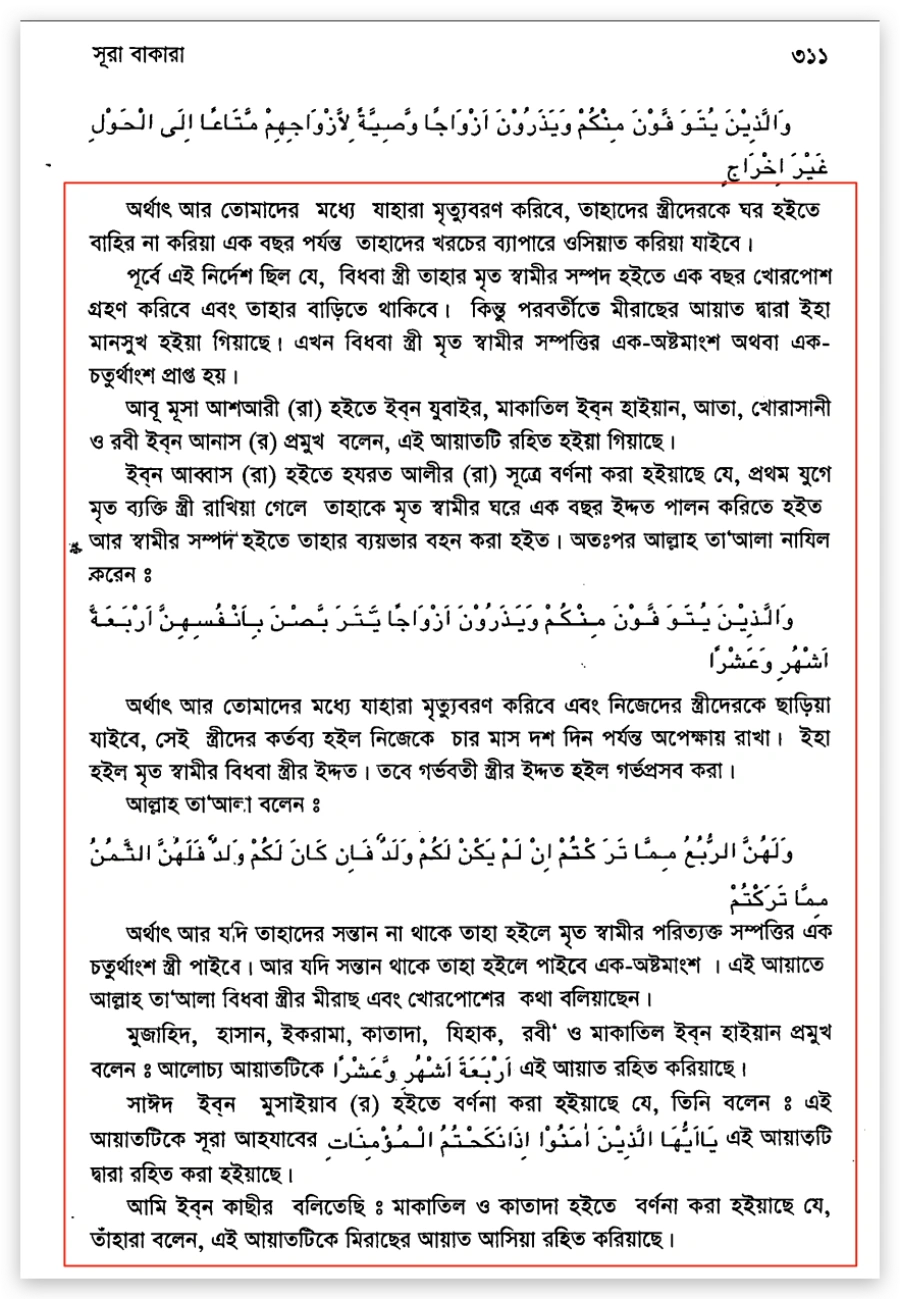 সূরা বাকারা ৩১১
وَالَّذِيْنَ يُتَوَ فَّوْنَ مِنْكُمْ وَيَذَرُوْنَ اَزْوَاجًا وَّصِيَّةً لِّأَزْوَاجِهِمْ مَّتَاعًا اِلَى الْحَوْلِ
غَيْرَ اِخْرَاجٍ
অর্থাৎ আর তোমাদের মধ্যে যাহারা মৃত্যুবরণ করিবে, তাহাদের স্ত্রীদেরকে ঘর হইতে
বাহির না করিয়া এক বছর পর্যন্ত তাহাদের খরচের ব্যাপারে ওসিয়াত করিয়া যাইবে।
পূর্বে এই নির্দেশ ছিল যে, বিধবা স্ত্রী তাহার মৃত স্বামীর সম্পদ হইতে এক বছর খোরপোশ
গ্রহণ করিবে এবং তাহার বাড়িতে থাকিবে। কিন্তু পরবর্তীতে মীরাছের আয়াত দ্বারা ইহা
মানসুখ হইয়া গিয়াছে। এখন বিধবা স্ত্রী মৃত স্বামীর সম্পত্তির এক-অষ্টমাংশ অথবা এক-
চতুর্থাংশ প্রাপ্ত হয়।
আবূ মূসা আশআরী (রা) হইতে ইব্‌ন যুবাইর, মাকাতিল ইব্‌ন হাইয়ান, আতা, খোরাসানী
ও রবী ইব্‌ন আনাস (র) প্রমুখ বলেন, এই আয়াতটি রহিত হইয়া গিয়াছে।
ইব্‌ন আব্বাস (রা) হইতে হযরত আলীর (রা) সূত্রে বর্ণনা করা হইয়াছে যে, প্রথম যুগে
মৃত ব্যক্তি স্ত্রী রাখিয়া গেলে তাহাকে মৃত স্বামীর ঘরে এক বছর ইদ্দত পালন করিতে হইত
আর স্বামীর সম্পদ হইতে তাহার ব্যয়ভার বহন করা হইত। অতঃপর আল্লাহ তা'আলা নাযিল
করেন ঃ
وَالَّذِيْنَ يُتَوَ فَّوْنَ مِنْكُمْ وَيَذَرُوْنَ اَزْوَاجًا يَّتَرَ بَّصْنَ بِاَنْفُسِهِنَّ اَرْبَعَةَ
اَشْهُرٍ وَعَشْرًا
অর্থাৎ আর তোমাদের মধ্যে যাহারা মৃত্যুবরণ করিবে এবং নিজেদের স্ত্রীদেরকে ছাড়িয়া
যাইবে, সেই স্ত্রীদের কর্তব্য হইল নিজেকে চার মাস দশ দিন পর্যন্ত অপেক্ষায় রাখা। ইহা
হইল মৃত স্বামীর বিধবা স্ত্রীর ইদ্দত। তবে গর্ভবতী স্ত্রীর ইদ্দত হইল গর্ভপ্রসব করা।
আল্লাহ তা'আলা বলেন ঃ
وَلَهُنَّ الرُّبُعُ مِمَّا تَرَ كْتُمْ اِنْ لَمْ يَكُنْ لَكُمْ وَلَدٌ فَاِن كَانَ لَكُمْ وَلَدٌ فَلَهُنَّ الثُّمُنُ
مِمَّا تَرَكْتُمْ
অর্থাৎ আর যদি তাহাদের সন্তান না থাকে তাহা হইলে মৃত স্বামীর পরিত্যক্ত সম্পত্তির এক
চতুর্থাংশ স্ত্রী পাইবে। আর যদি সন্তান থাকে তাহা হইলে পাইবে এক-অষ্টমাংশ । এই আয়াতে
আল্লাহ তা'আলা বিধবা স্ত্রীর মীরাছ এবং খোরপোশের কথা বলিয়াছেন।
মুজাহিদ, হাসান, ইকরামা, কাতাদা, যিহাক, রবী' ও মাকাতিল ইব্‌ন হাইয়ান প্রমুখ
বলেন ঃ আলোচ্য আয়াতটিকে اَرْبَعَةَ اَشْهُرٍ وَّعَشْرًا এই আয়াত রহিত করিয়াছে।
সাঈদ ইব্‌ন মুসাইয়াব (র) হইতে বর্ণনা করা হইয়াছে যে, তিনি বলেন ঃ এই
আয়াতটিকে সূরা আহযাবের يَااَيُّهَا الَّذِيْنَ اٰمَنُوْا اِذَانَكَحْتُمُ الْمُؤْمِنَاتِ এই আয়াতটি
দ্বারা রহিত করা হইয়াছে।
আমি ইব্‌ন কাছীর বলিতেছি ঃ মাকাতিল ও কাতাদা হইতে বর্ণনা করা হইয়াছে যে,
তাঁহারা বলেন, এই আয়াতটিকে মিরাছের আয়াত আসিয়া রহিত করিয়াছে।